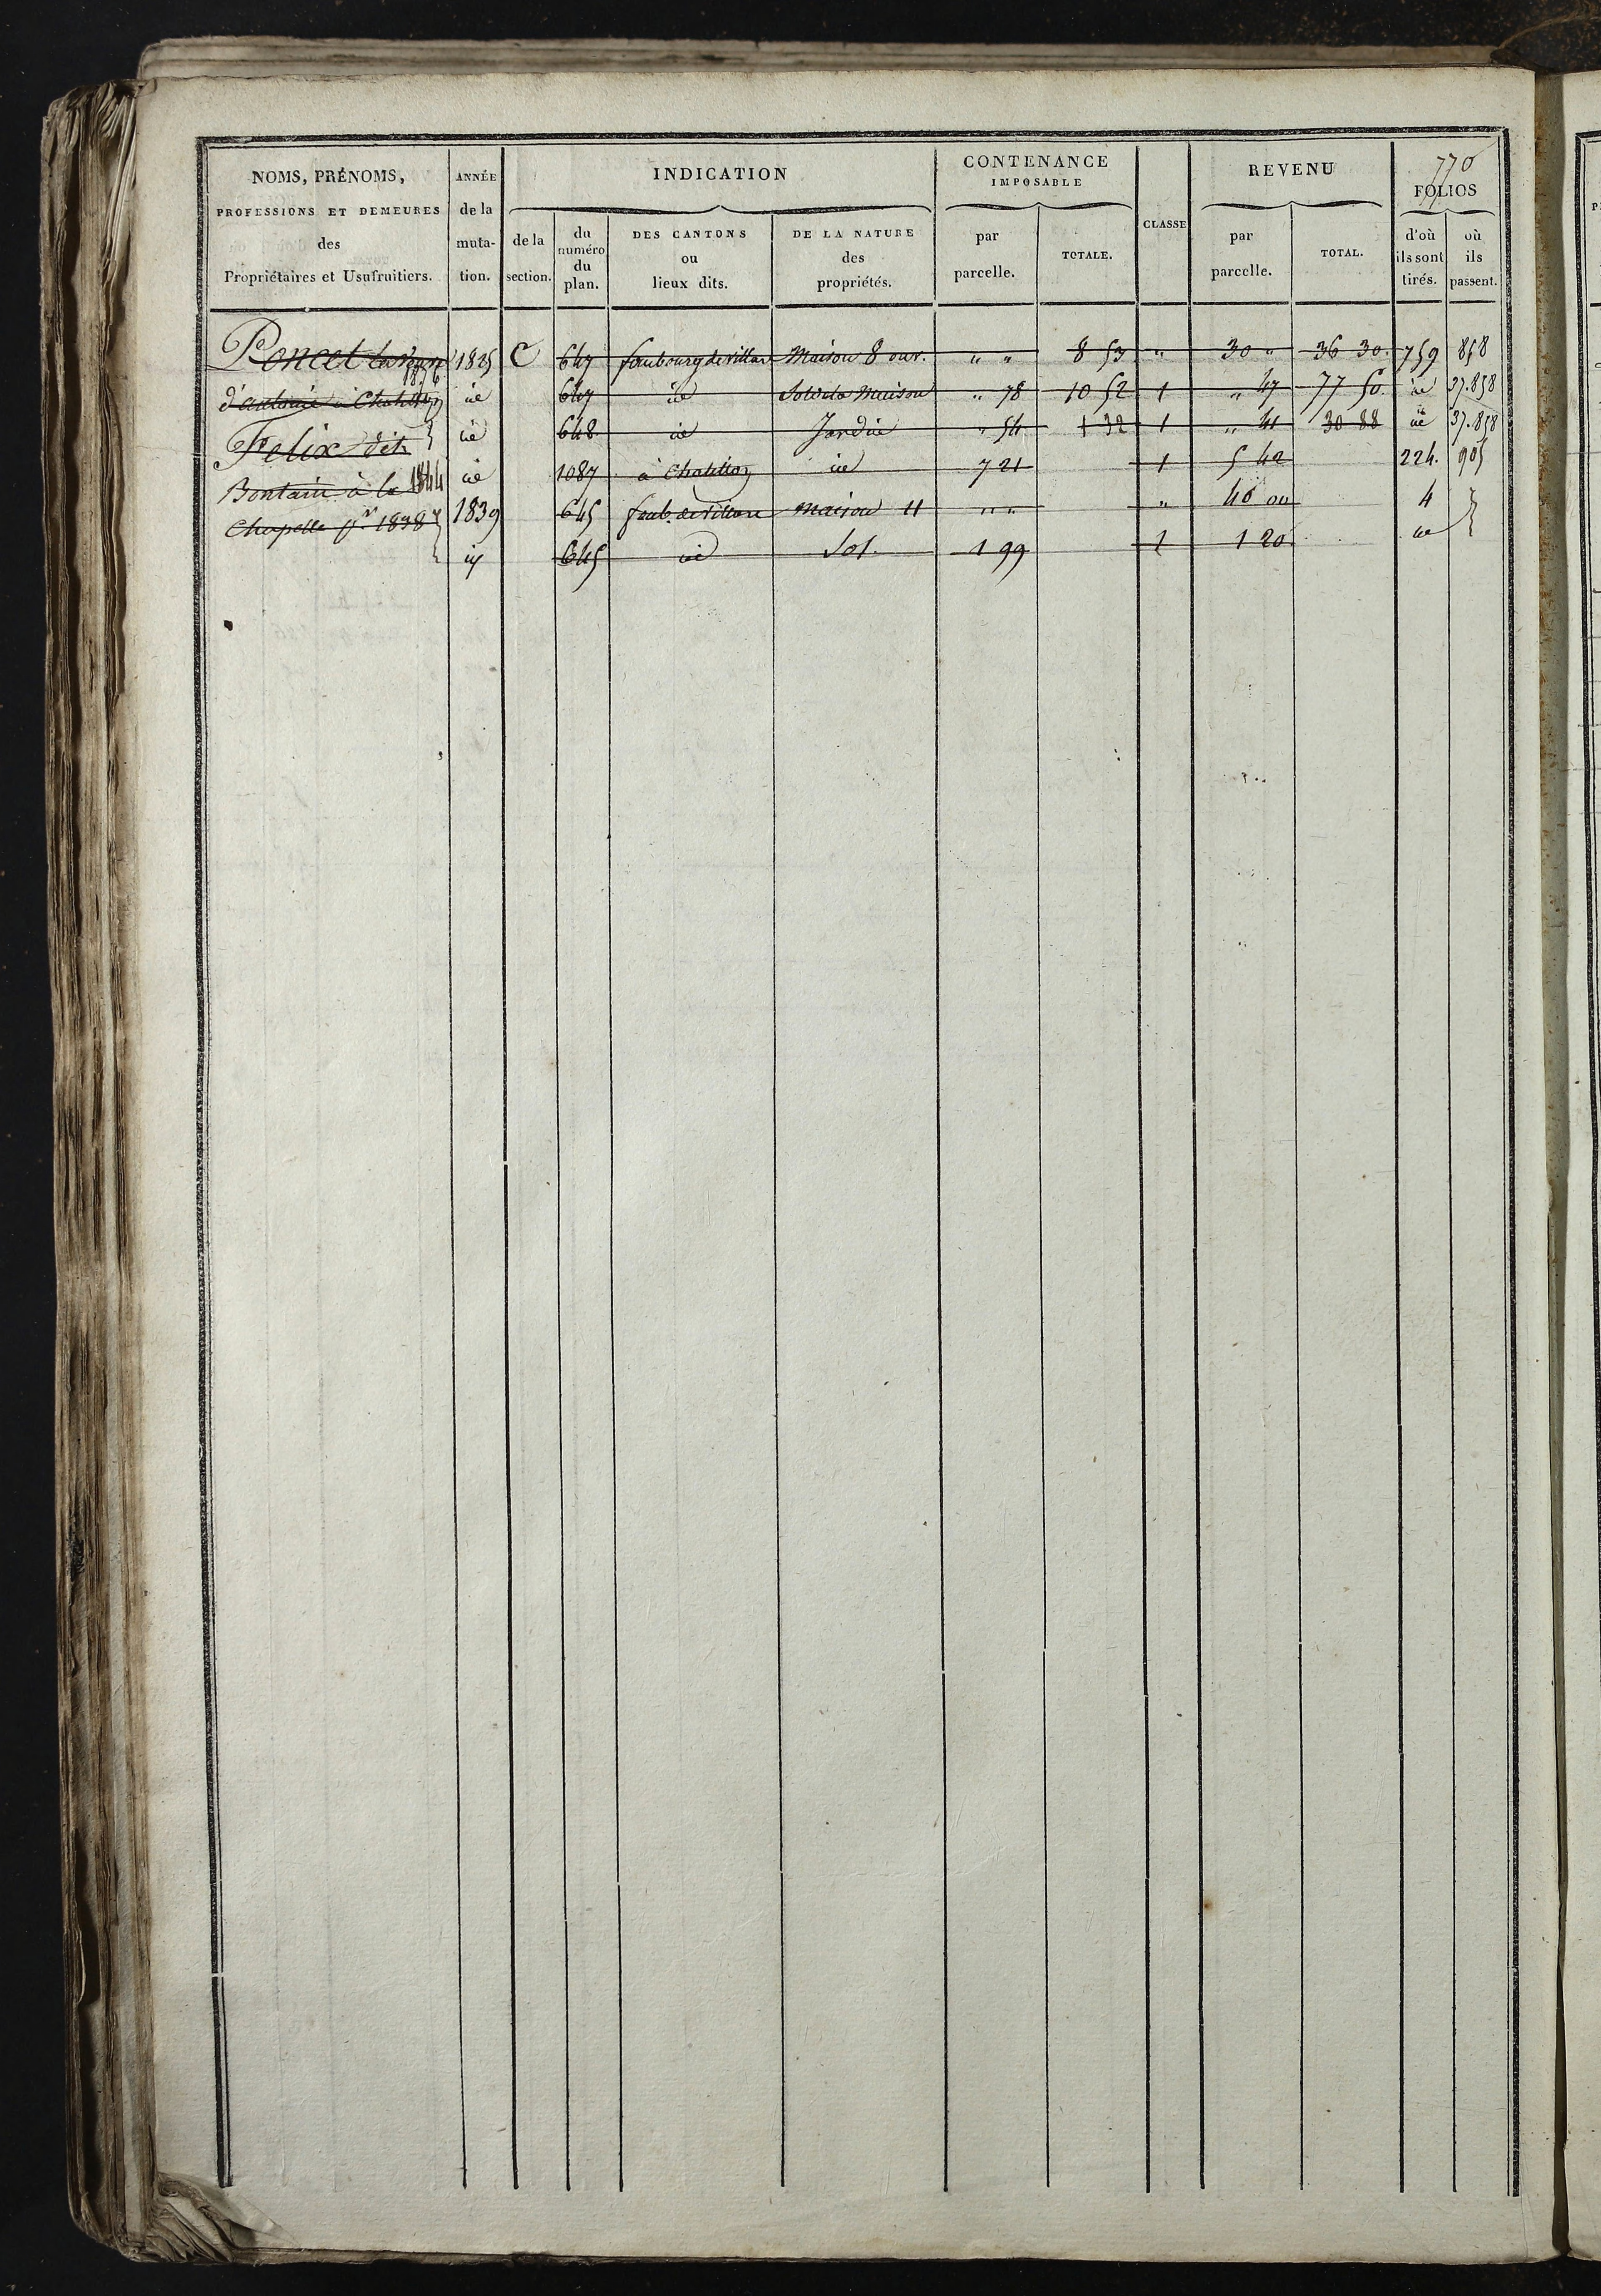 770
NOMS, PRÉNOMS, PROFESSIONS ET DEMEURES des Propriétaires et Usufruitiers.
ANNÉE de la muta-tion.
INDICATION
de la section.
du numéro du plan.
DES CANTONS ou lieux dits.
DE LA NATURE des propriétés.
CONTENANCE IMPOSABLE
par parcelle.
TOTALE.
CLASSE
REVENU
par parcelle.
TOTAL.
FOLIOS
d'où ils sont tirés.
où ils passent.
Poncet 1835 C 647 faubourg de villars Maison 8 ouv. " " 8 53 " 30 " 36 30. 759 858
1836
d'antoine à Chatillon id 647 id Sol de la Maison " 78 10 52 1 " 47 77 50 id 37.858
Felix dit id 648 id Jardin " 54 1 32 1 " 41 30 88 id 37.858
Bontain à la 1844 id 1087 à Chatillon id 7 21 1 5 42 224. 905
Chapelle pr 1838 1839 645 faub. de villars maison 11 " " " 40 ou 4
id 645 id Sol. 1 99 1 1 20 id